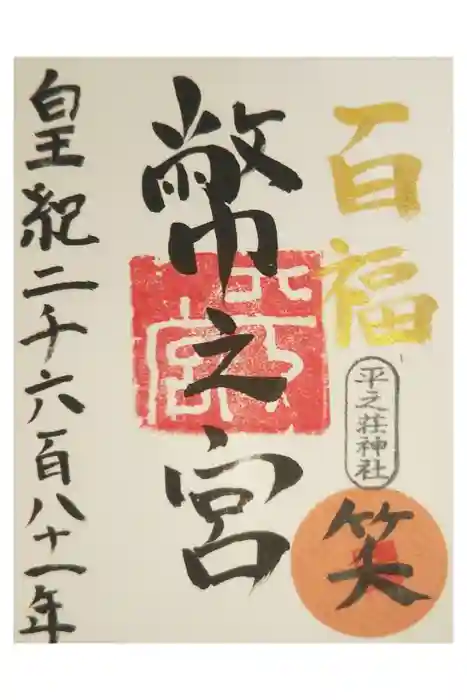 百福
平之荘神社
笑
幣之宮
皇紀二千六百八十一年